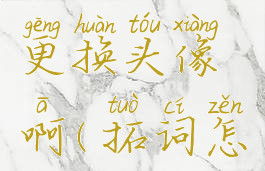 gēng huàn tóu xiàng
更换头像
ā tuò cí zěn
啊(拓词怎